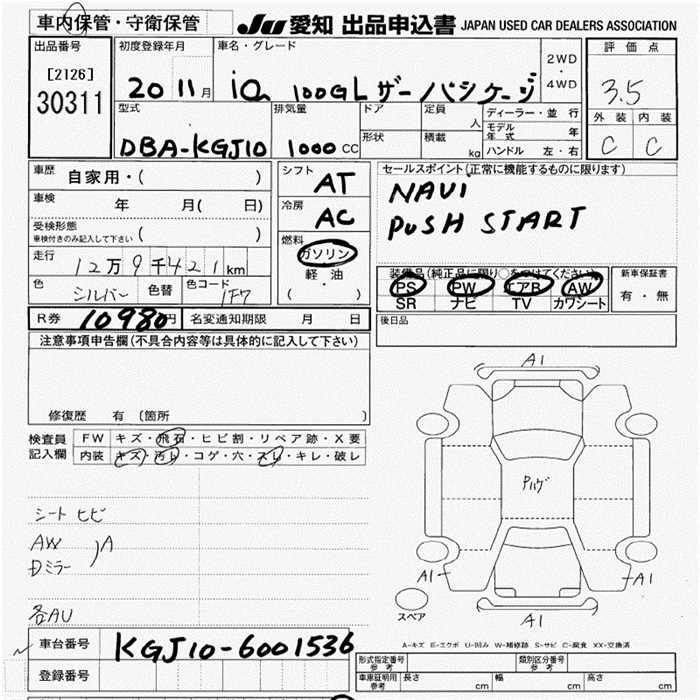 車内保管・守衛保管
JU 愛知 出品申込書 JAPAN USED CAR DEALERS ASSOCIATION
出品番号
[2126]
30311
初度登録年月
20 11月
車名・グレード
iQ 100G Lザーパシケージ
2WD
・
4WD
評価点
3.5
外装 内装
C C
型式
DBA-KGJ10
排気量
1000 CC
ドア
形状
定員
人
積載
kg
ディーラー・並行
モデル年式 年
ハンドル 左・右
車歴 自家用・( )
車検 年 月( 日)
受検形態
車検付きのみ記入して下さい ( )
走行 12万9千421km
色 シルバー 色替 色コード 1F7
シフト AT
冷房 AC
燃料
ガソリン
・
軽油
( ・ )
セールスポイント(正常に機能するものに限ります)
NAVI
PUSH START
装備品(純正品に限り○をつけてください)
PS PW エアB AW
SR ナビ TV カワシート
新車保証書
有・無
後日品
R券 10980円 名変通知期限 月 日
注意事項申告欄(不具合内容等は具体的に記入して下さい)
修復歴 有 (箇所 )
検査員
記入欄
FW キズ・飛石・ヒビ割・リペア跡・X要
内装 キズ・汚レ・コゲ・穴・スレ・キレ・破レ
シート ヒビ
AW
Dミラー
A
各AU
A1
A1
A1
A1
スペア
A-キズ E-エクボ U-凹み W-補修跡 S-サビ C-腐食 XX-交換済
車台番号 KGJ10-6001536
登録番号
形式指定番号
参考
類別区分番号
参考
車庫証明用
参考
長さ cm 幅 cm 高さ cm